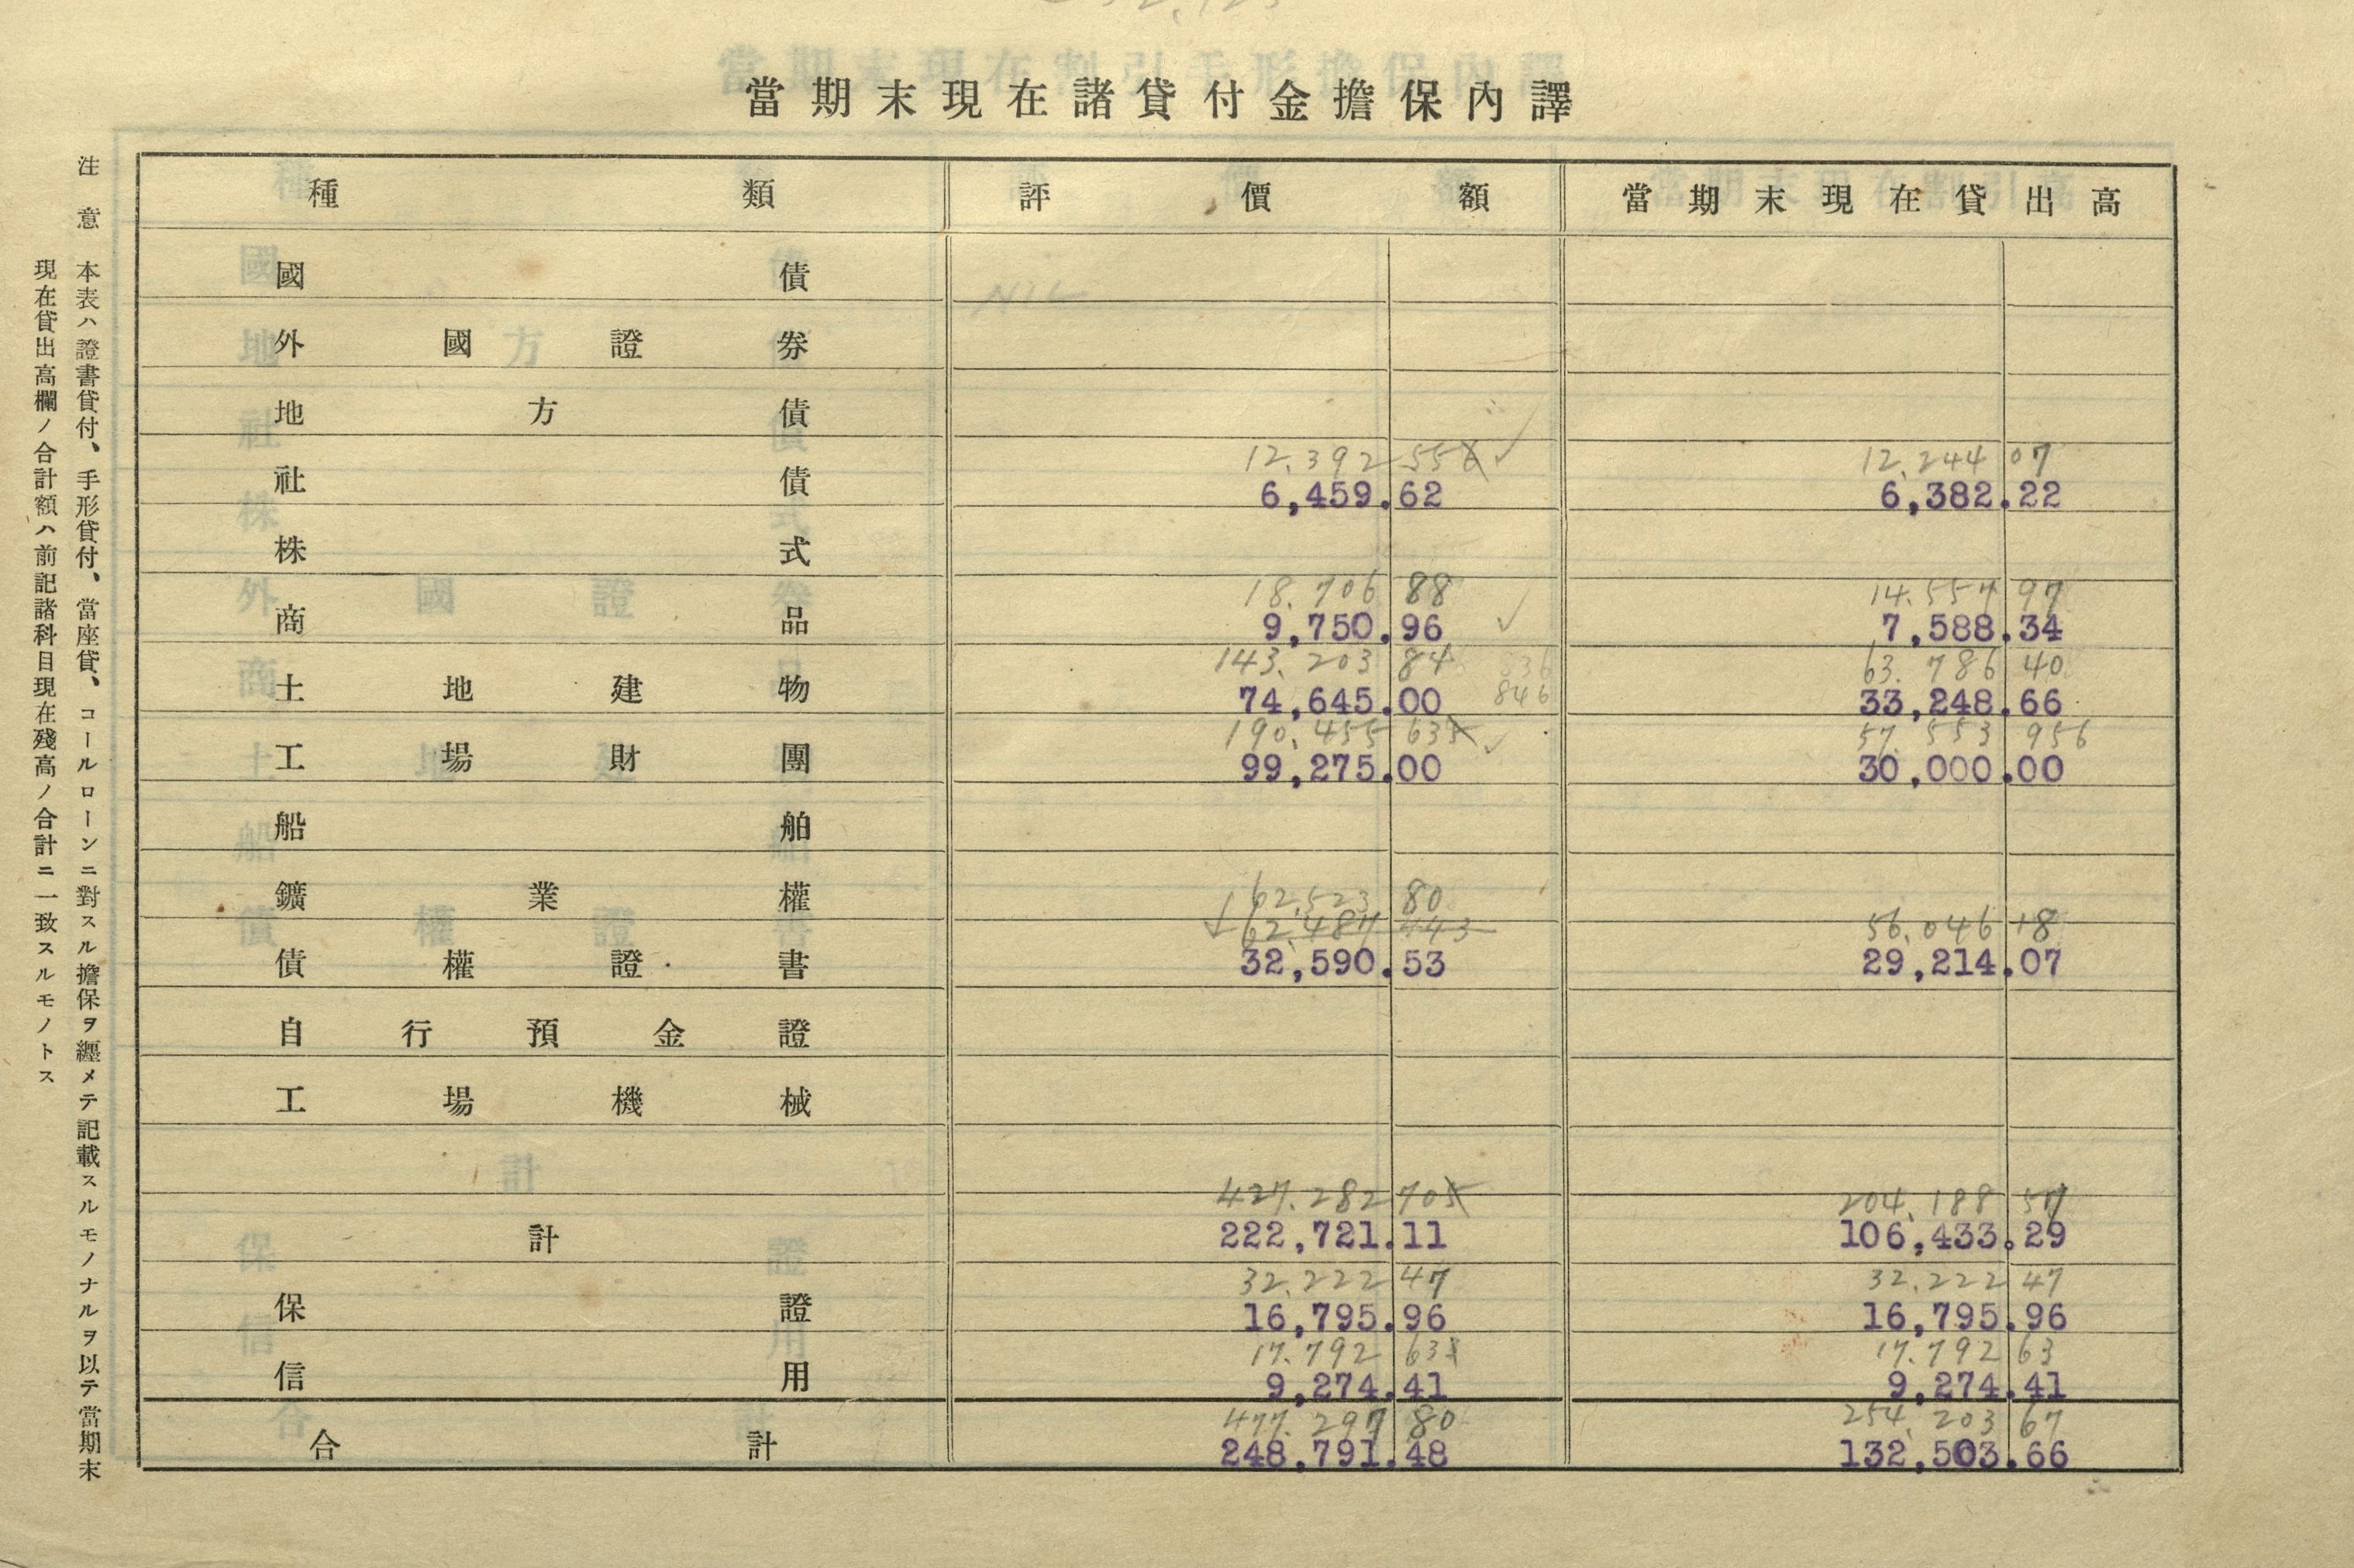 當期末現在諸貸付金擔保內譯
種類 評價額 當期末現在貸出高
國債 NIL
外國證券
地方債
12.392 556 12.244 07
社債 6,459.62 6,382.22
株式
18.706 88 14.557 97
商品 9,750.96 7,588.34
143.203 84 63.786 40
土地建物 74,645.00 846 33,248.66
190.455 635 57.553 956
工場財團 99,275.00 30,000.00
船舶
62.523 80
鑛業權
62.487 443 56.046 18
債權證書 32,590.53 29,214.07
自行預金證
工場機械
427.282 705 204.188 57
計 222,721.11 106,433.29
32.222 47 32.222 47
保證 16,795.96 16,795.96
17.792 63 17.792 63
信用 9,274.41 9,274.41
477.297 80 254.203 67
合計 248,791.48 132,503.66
注意 本表ハ證書貸付、手形貸付、當座貸、コールローンニ對スル擔保ヲ纒メテ記載スルモノナルヲ以テ當期末
現在貸出高欄ノ合計額ハ前記諸科目現在殘高ノ合計ニ一致スルモノトス